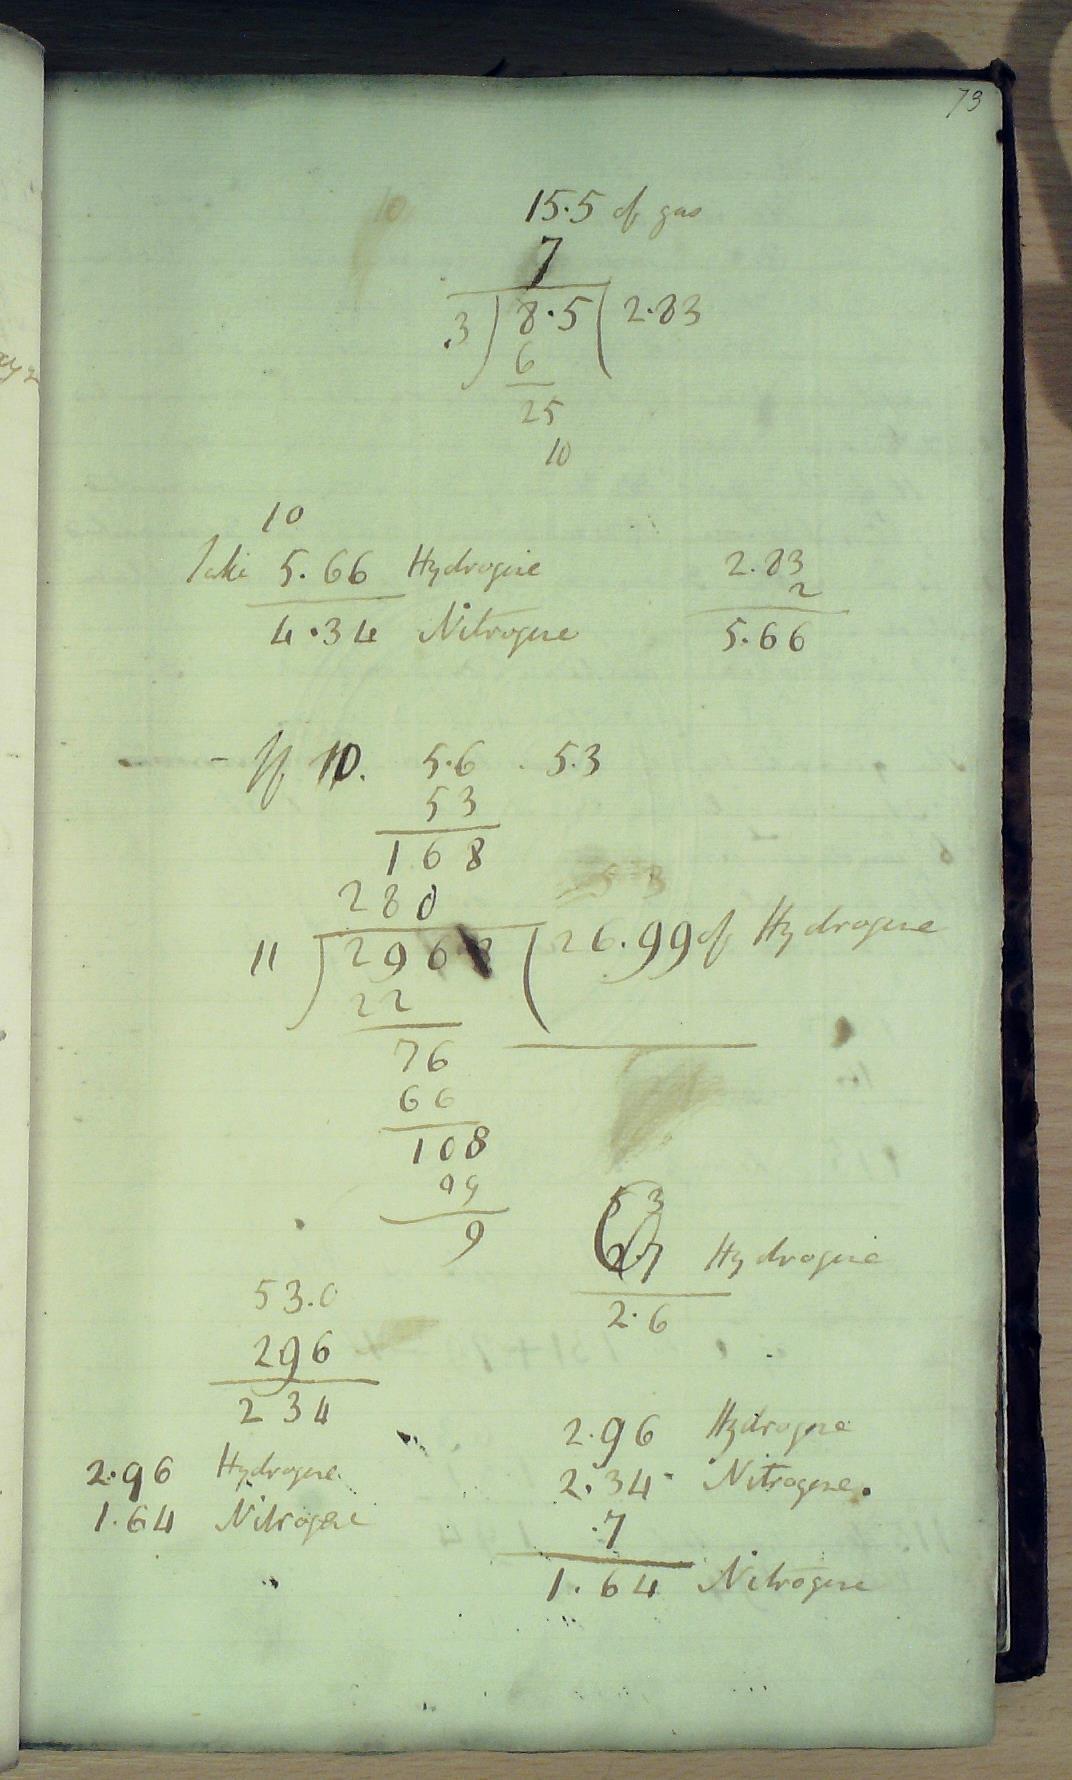 73
15.5 of gas
7
.3) 8.5 ( 2.83
6
25
10
10
Take 5.66 Hydrogene
4.34 Nitrogene
2.83
2
5.66
- If 10. 5.6 . 5.3
53
168
280
11) 296 ( 26.99 of Hydrogene
22
76
66
108
99
9
53
Hydrogene
2.6
53.0
296
234
2.96 Hydrogene
1.64 Nitrogene
2.96 Hydrogene
2.34 Nitrogene.
.7
1.64 Nitrogene